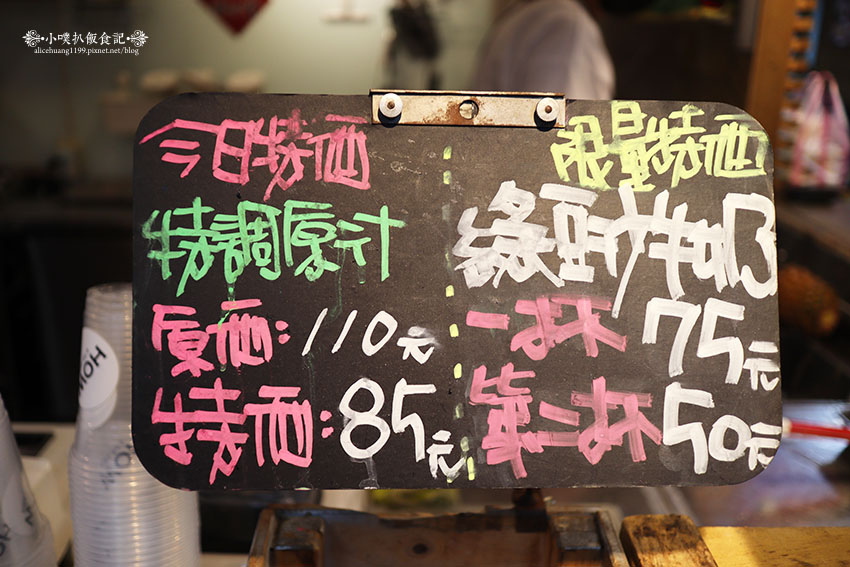 小噗扒飯食記
alicehuang1199.pixnet.net/blog
今日特価
特調原汁
原価:110元
特価:85元
限量特価
綠豆牛奶
一杯 75元
第二杯 50元